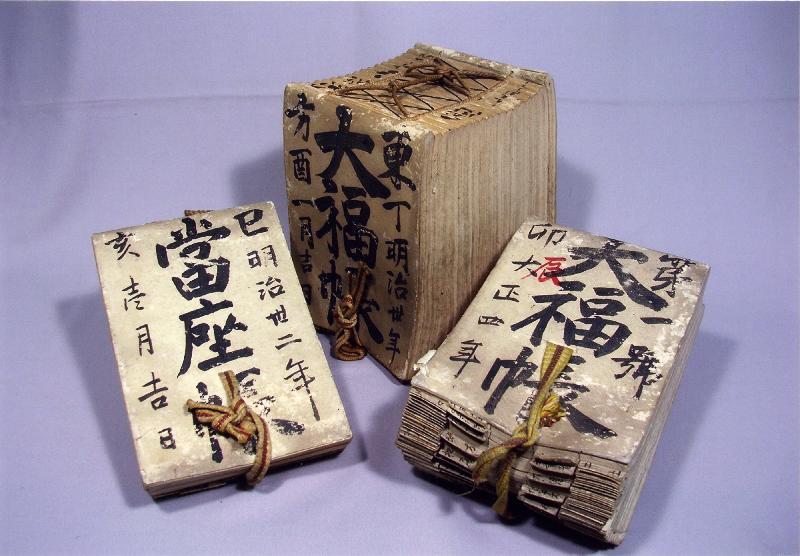 己明治丗二年
當座帳
亥壱月吉日
東丁明治丗年
大福帳
方酉一月吉日
第一號
大福帳
辰
卯大正四年